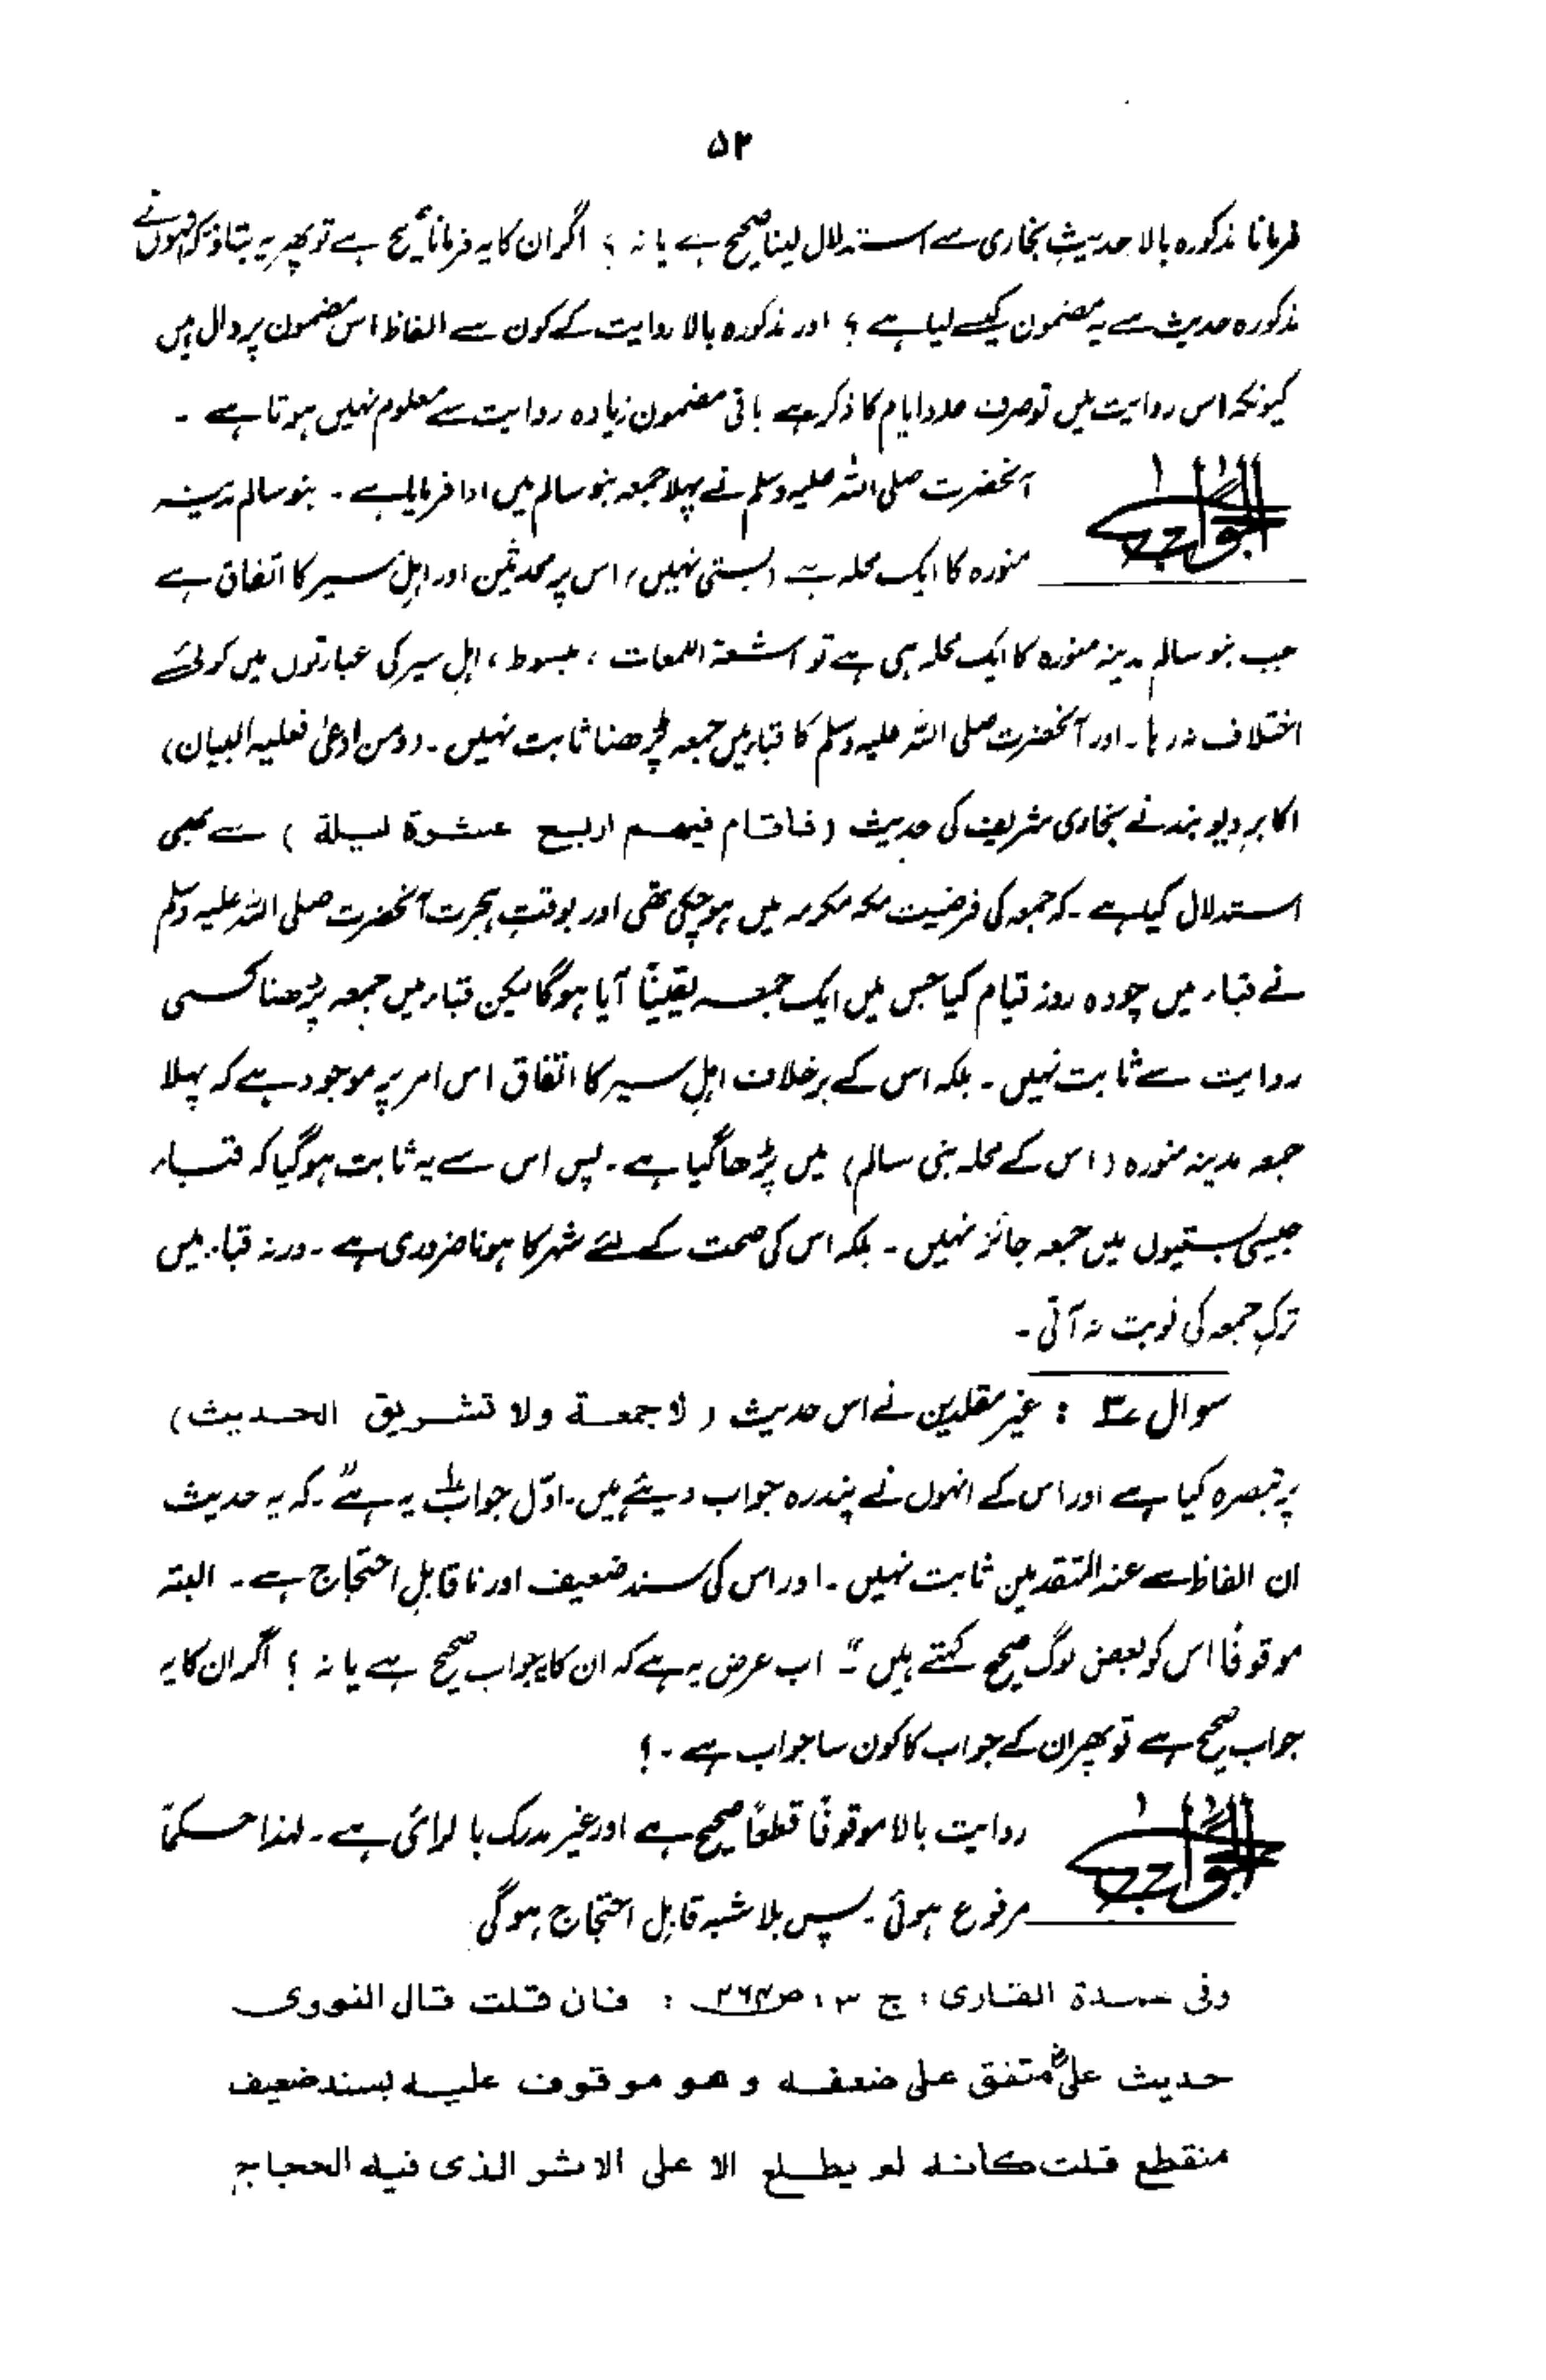 ۵۲
فرمانا مذکورہ بالا حدیثِ بخاری سے استدلال لینا صحیح ہے یا نہ ؟ اگر ان کا یہ فرمانا صحیح ہے تو پھر یہ بتاؤ کہ انہوں نے
مذکورہ حدیث سے یہ مضمون کیسے لیا ہے ؟ اور مذکورہ بالا روایت کے کون سے الفاظ اس مضمون پر دال ہیں
کیونکہ اس روایت میں تو صرف عدد ایام کا ذکر ہے باقی مضمون زیادہ روایت سے معلوم نہیں ہوتا ہے ۔
الجواب
آنحضرت صلی اللہ علیہ وسلم نے پہلا جمعہ بنو سالم میں ادا فرمایا ہے ۔ بنو سالم مدینہ
منورہ کا ایک محلہ ہے (بستی نہیں) اس پر محدثین اور اہلِ سیر کا اتفاق ہے
جب بنو سالم مدینہ منورہ کا ایک محلہ ہی ہے تو اشعۃ اللمعات ، مبسوط ، اہلِ سیر کی عبارتوں میں کوئی
اختلاف نہ رہا ۔ اور آنحضرت صلی اللہ علیہ وسلم کا قباء میں جمعہ پڑھنا ثابت نہیں ۔ (ومن ادعیٰ فعلیہ البیان)
اکابرِ دیوبند نے بخاری شریف کی حدیث (فاقام فیهم اربع عشرة لیلة) سے بھی
استدلال کیا ہے ۔ کہ جمعہ کی فرضیت مکہ مکرمہ میں ہو چکی تھی اور بوقتِ ہجرت آنحضرت صلی اللہ علیہ وسلم
نے قباء میں چودہ روز قیام کیا جس میں ایک جمعہ یقیناً آیا ہوگا لیکن قباء میں جمعہ پڑھنا کسی
روایت سے ثابت نہیں ۔ بلکہ اس کے برخلاف اہلِ سیر کا اتفاق اس امر پر موجود ہے کہ پہلا
جمعہ مدینہ منورہ (اس کے محلہ بنی سالم) میں پڑھا گیا ہے ۔ پس اس سے یہ ثابت ہوگیا کہ قباء
جیسی بستیوں میں جمعہ جائز نہیں ۔ بلکہ اس کی صحت کے لئے شہر کا ہونا ضروری ہے ۔ ورنہ قباء میں
ترکِ جمعہ کی نوبت نہ آتی ۔
سوال ۳ : غیر مقلدین نے اس حدیث (لا جمعة ولا تشریق الحدیث)
پر تبصرہ کیا ہے اور اس کے انہوں نے پندرہ جواب دیئے ہیں ۔ اوّل جواب یہ ہے "۔ کہ یہ حدیث
ان الفاظ سے عند المتقدمین ثابت نہیں ۔ اور اس کی سند ضعیف اور ناقابلِ احتجاج ہے ۔ البتہ
موقوفًا اس کو بعض لوگ صحیح کہتے ہیں "۔ اب عرض یہ ہے کہ ان کا یہ جواب صحیح ہے یا نہ ؟ اگر ان کا یہ
جواب صحیح ہے تو پھر ان کے جواب کا کون سا جواب ہے ۔ ؟
الجواب
روایت بالا موقوفًا قطعًا صحیح ہے اور غیر مدرک بالرائی ہے ۔ لہذا حکمًا
مرفوع ہوئی ۔ پس بلا شبہ قابلِ احتجاج ہوگی
وفی عمدة القاری : ج ۳ ، ص ۲۶۴ : فان قلت قال النووی
حدیث علیؓ متفق علی ضعفه وهو موقوف علیه بسند ضعیف
منقطع قلت کانه لم یطلع الا علی الاثر الذی فیه الحجاج